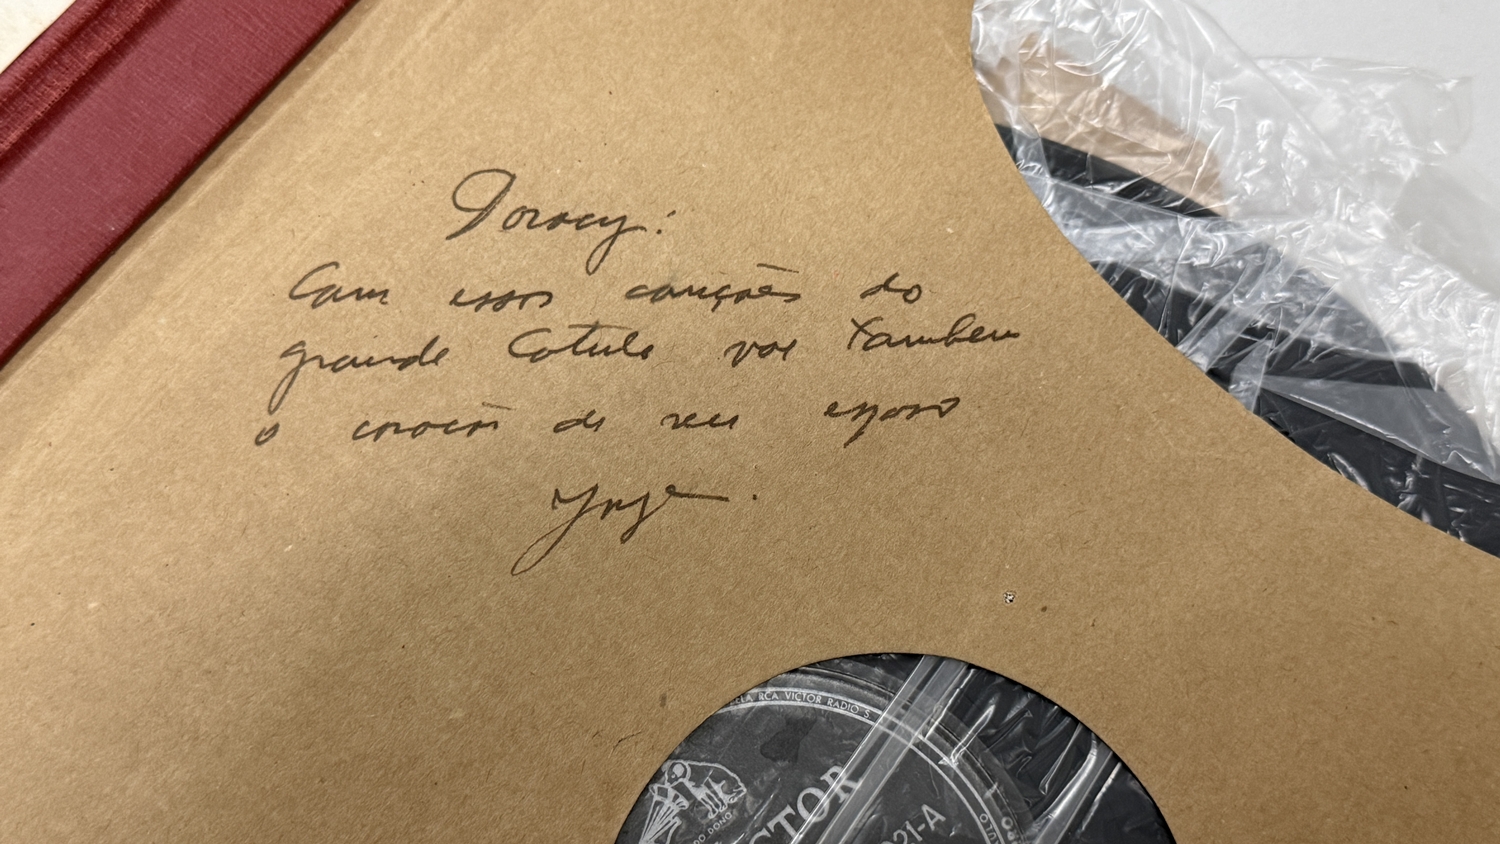 Doracy:
Com essas canções do
grande Catulo vae tambem
o coração de seu esposo
Jorge.
ELA RCA VICTOR RADIO S
DO DONO
CTOR
21-A